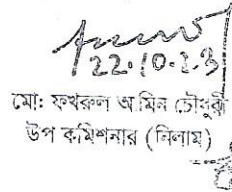 22.10.23
মো: ফখরুল আমিন চৌধুরী
উপ কমিশনার (নিলাম)